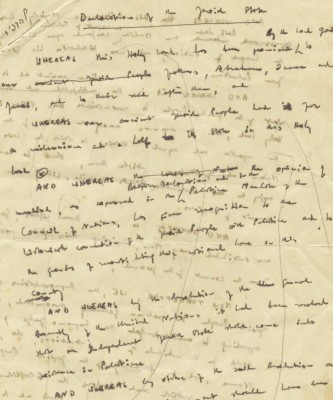 Declaration of the Jewish State
By the Lord God
WHEREAS this Holy Land has been promised to
our Fathers, Abraham, Isaac and
Jacob, and to their seed after them, and
WHEREAS our ancient Jewish People had for
a millennium and a half its State in this Holy
Land
AND WHEREAS the opinion of
mankind, as expressed in the Palestine Mandate of the
Council of Nations, has given recognition to the
historical connection of the Jewish People with Palestine and to
the grounds of reconstituting their national home in this
Country
AND WHEREAS by the Resolution of the General
Assembly of the United Nations it had been resolved
that an Independent Jewish State should come into
existence in Palestine
AND WHEREAS by virtue of the said Resolution
should have